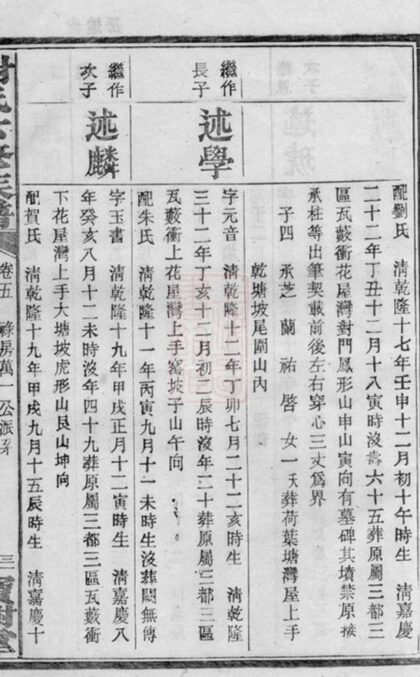 配劉氏　淸乾隆十七年壬申十二月初十午時生　淸嘉慶
二十二年丁丑十二月十八寅時沒壽六十五葬原屬三都三
區瓦藪衝花屋灣對門鳳形山申山寅向有墓碑其墳禁原接
承柱等出筆契載前後左右穿心三丈爲界
子四　承芝　蘭　祐　啓　女一　夭葬荷葉塘灣屋上手
乾塘坡尾圍山內
繼作長子
述學
字元音　淸乾隆十二年丁卯七月二十二亥時生　淸乾隆
三十二年丁亥十二月初二辰時沒年二十葬原屬三都三區
瓦藪衝上花屋灣上手窰坡子山午向
配朱氏　淸乾隆十一年丙寅九月十一未時生沒葬閟無傳
繼作次子
述麟
字玉書　淸乾隆十九年甲戌正月十二寅時生　淸嘉慶八
年癸亥八月十二未時沒年四十九葬原屬三都三區瓦藪衝
下花屋灣上手大塘坡虎形山艮山坤向
配賀氏　淸乾隆十九年甲戌九月十五辰時生　淸嘉慶十
卷五　祿房萬一公派系　三